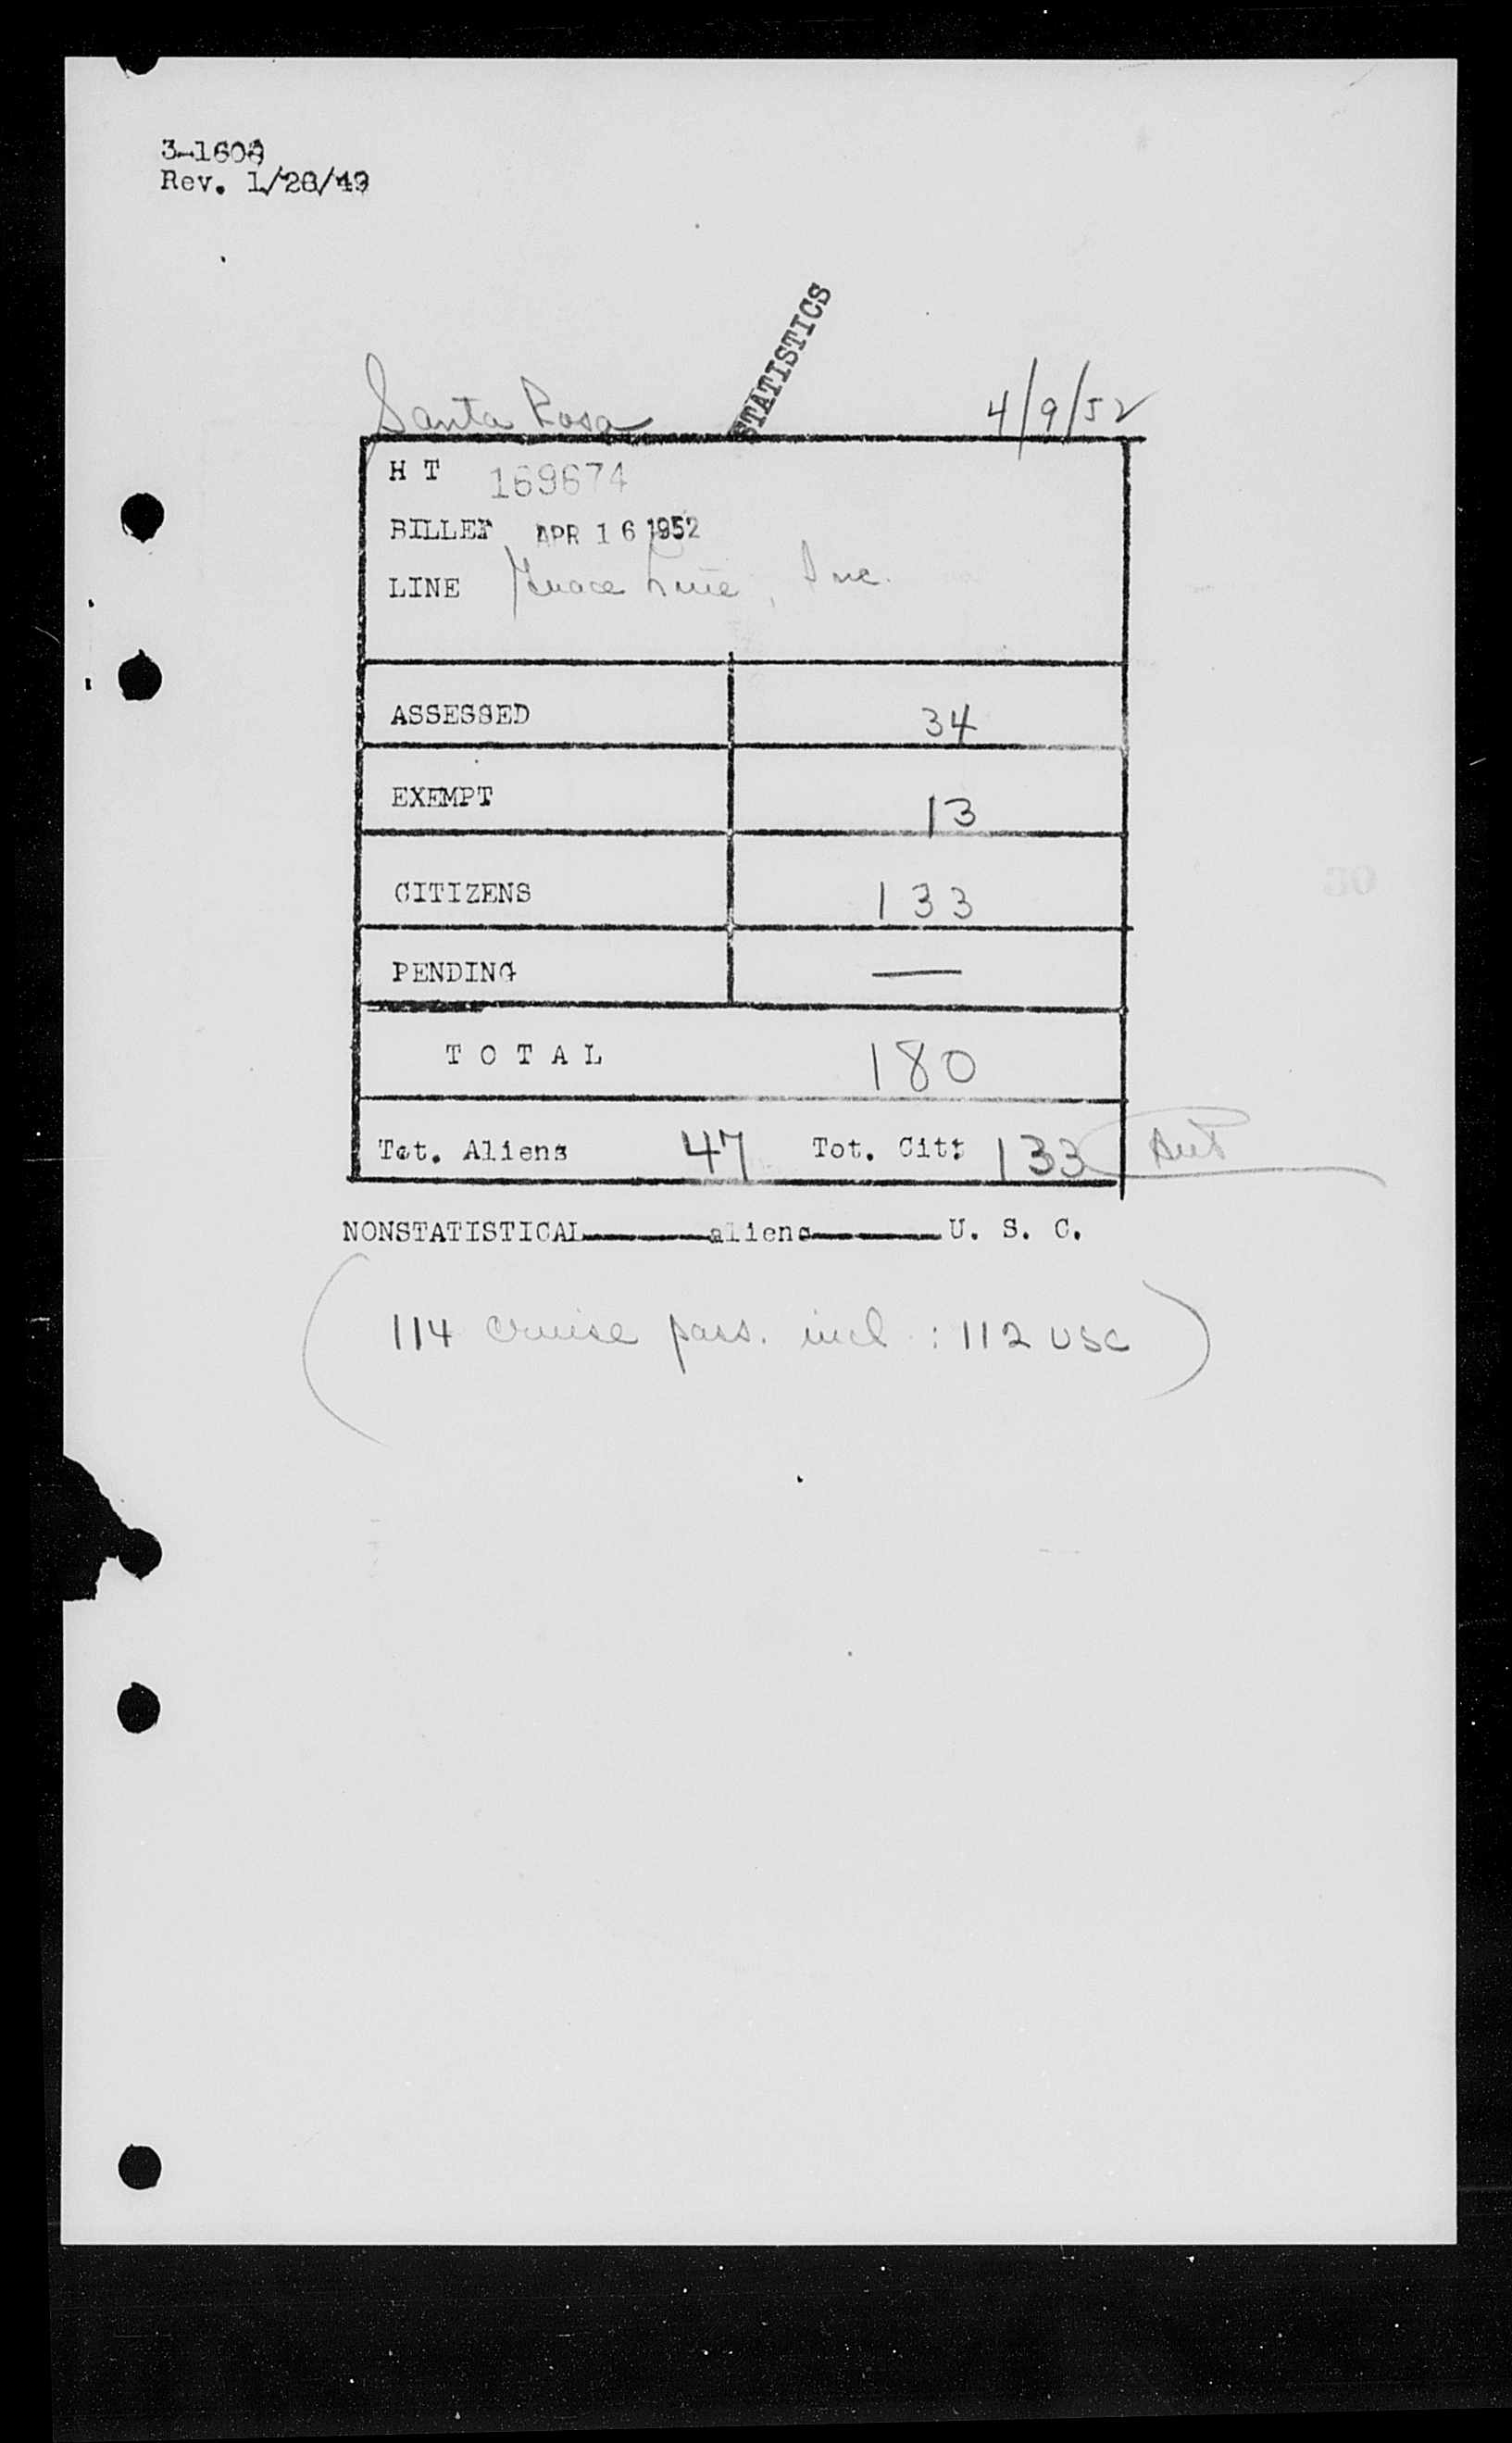 3-1608
Rev. 1/28/49
STATISTICS
Santa Rosa 4/9/52
H T 169674
BILLET APR 16 1952
LINE Grace Line, Inc.
ASSESSED 34
EXEMPT 13
CITIZENS 133
PENDING —
T O T A L 180
Tot. Aliens 47 Tot. Cit: 133
NONSTATISTICAL aliens U. S. C.
(114 cruise pass. incl.: 112 USC)